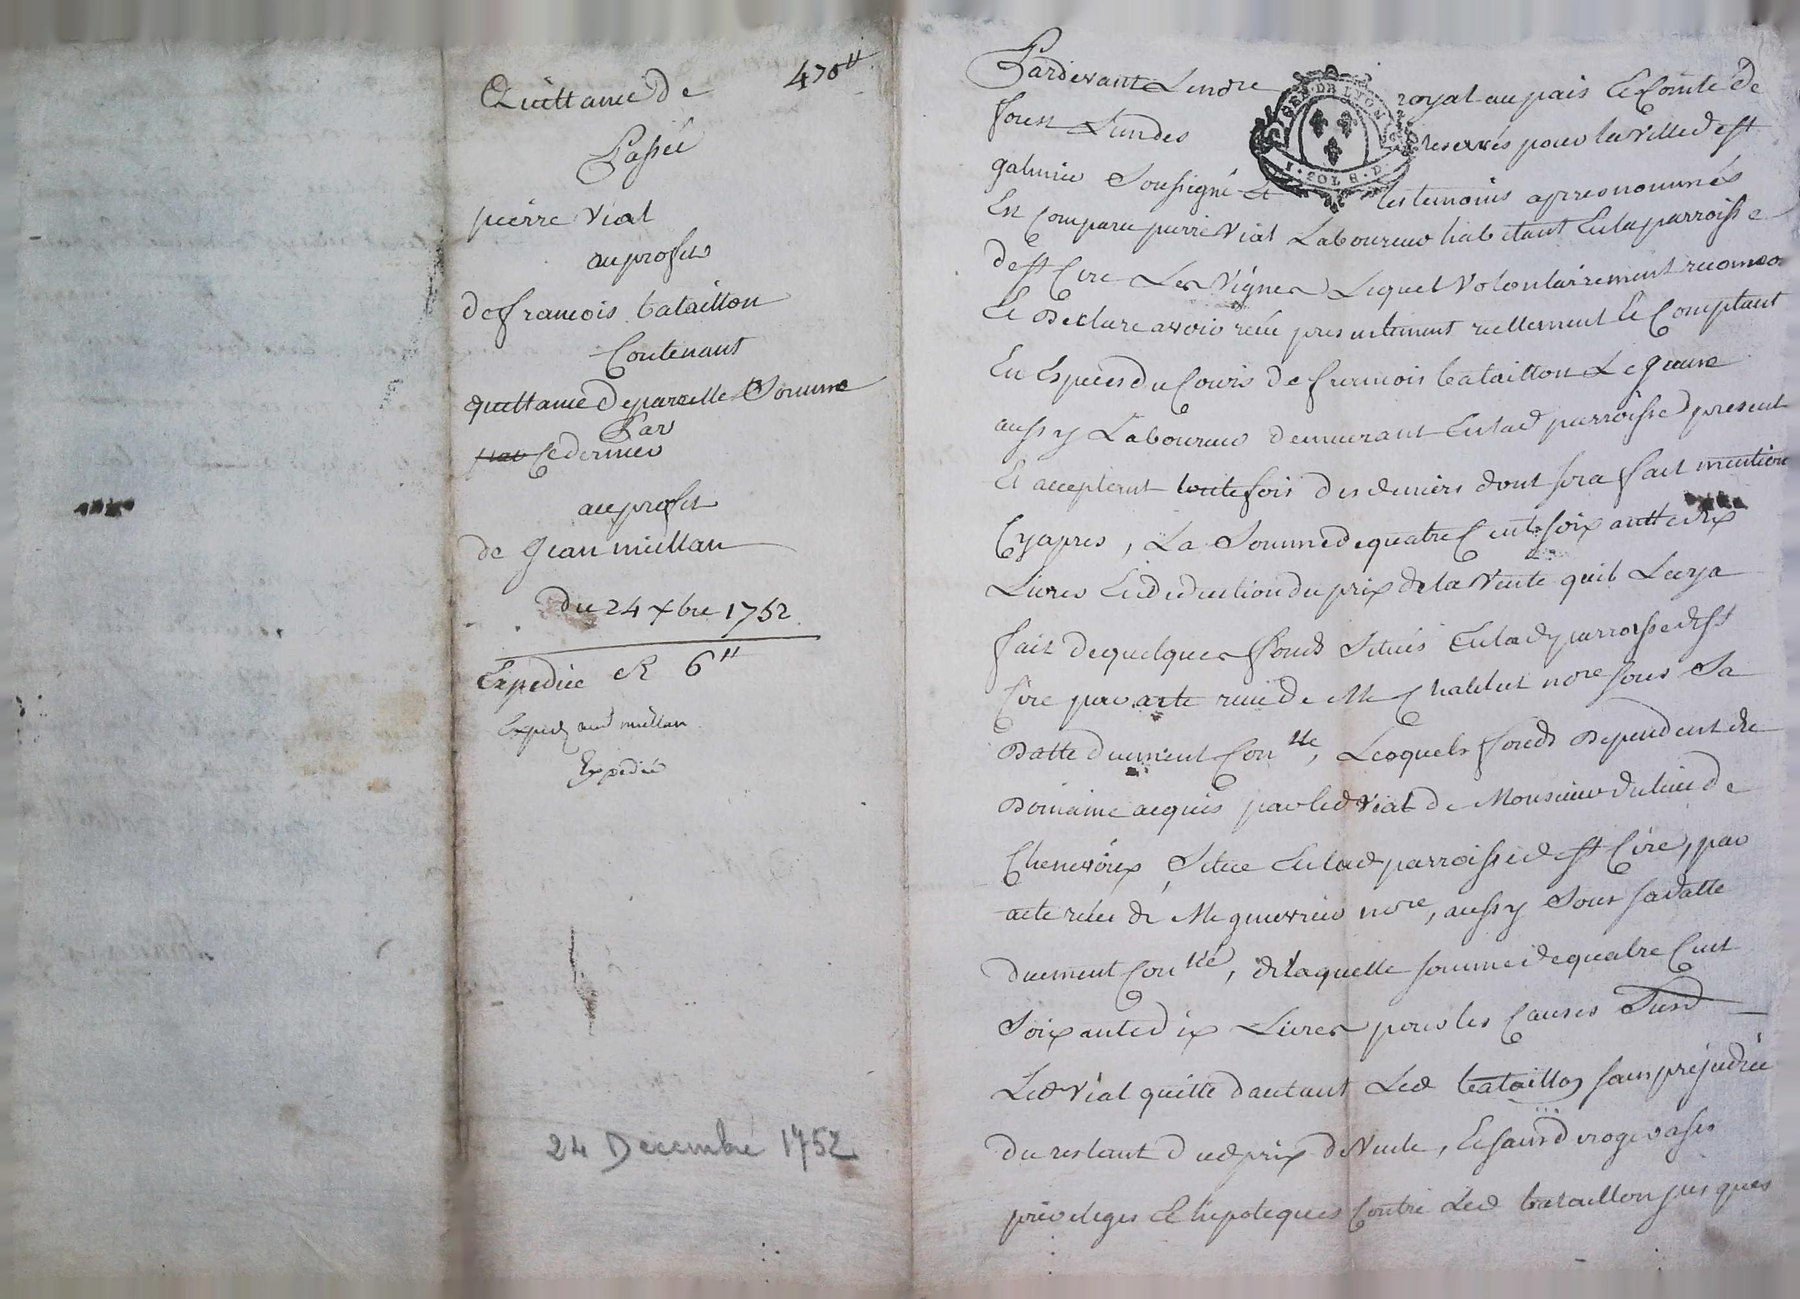 Quittance de 470ᵗᵗ
Passée
pierre Vial
au profit
de francois bataillon
Contenant
quittance de pareille Somme
Par
par Ce dernier
au profit
de Jean miellan
du 24 xbre 1752
Expediée R 6ᵗᵗ
Exped miellan
Expediée
24 Decembre 1752
Pardevant Le nore royal au pais Et Comté de
forest Lun des reservés pour la ville de st
galmier Soussigné Et les temoins apres nommés
Est Comparu pierre Vial Laboureur habitant En la parroisse
de st Cire Les Vignes Lequel Volontairement reconnoo
Et Declare avoir reçu presentement reellement Et Comptant
En Especes du Cours de francois bataillon Le Jeune
aussy Laboureur demeurant En lad parroisse present
Et acceptent toutefois des deniers dont sera fait mention
Cyapres, La Somme de quatre Cent soixantte dix
Livres En deduction du prix de la Vente quil Luy a
fait de quelques fonds Situés En lad parroisse de st
Cire par acte reçu de Me Chalelut nore sous Sa
Datte duement Conlle, Lesquels fonds Dependent du
Domaine acquis par led Vial de Monsieur dulieu de
Chenevoux, Situé En lad parroisse de st Cire, par
acte reçu de Me guerrier nore, aussy Sous sa datte
duement Conlle, de laquelle somme de quatre Cent
Soixante dix Livres pour les Causes Susd
Led Vial quitte dautant Led bataillon sans prejudice
du restant dud prix de Vente, Et sans deroger a ses
privileges Et hipoteques Contre Led bataillon jusques
GEN. DE LYON
SOL 8. D